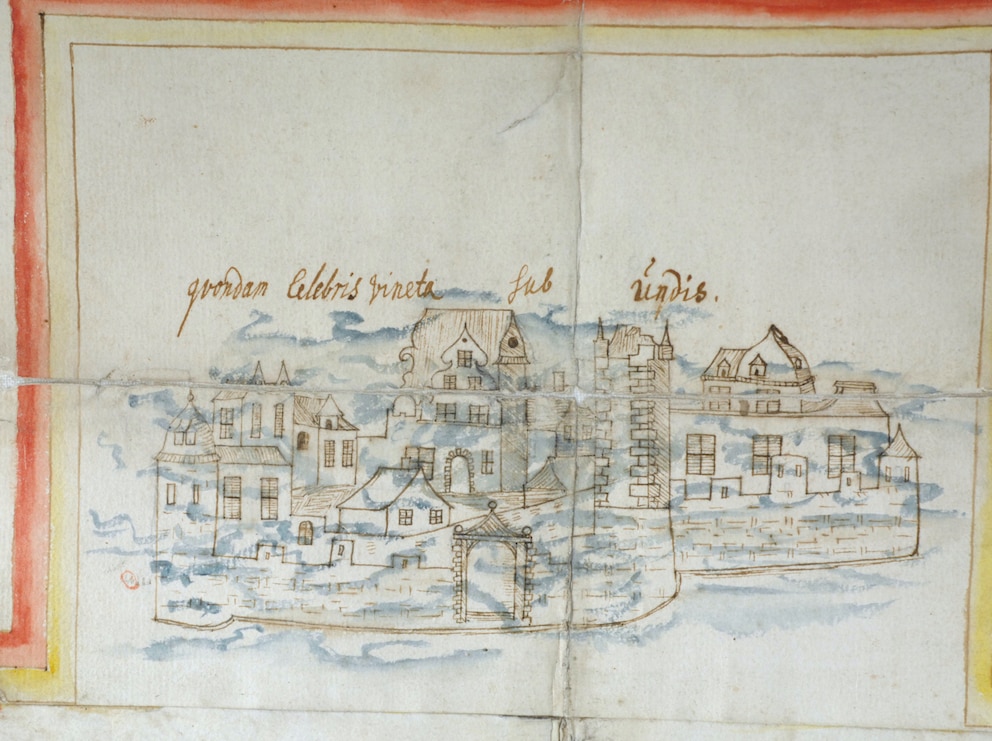 quondam Celebris vineta sub undis.